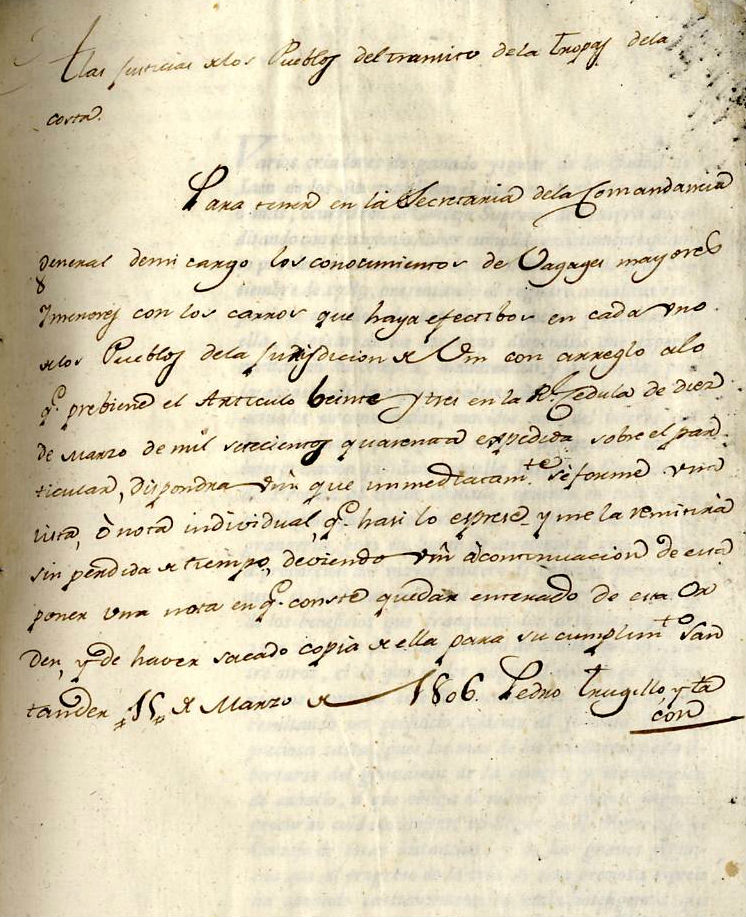 A las Justicias de los Pueblos del tramito de la Tropas de la
costa.
Para tener en la Secretaria de la Comandancia
General de mi cargo los conocimientos de Vagages mayores
Y menores con los carros que haya efectibos en cada uno
de los Pueblos de la Jurisdicion de Vm con arreglo a lo
q.e prebiene el Articulo beinte y tres en la R.l Cedula de diez
de Marzo de mil setecientos quarenta expedida sobre el par
ticular, dispondra Vm que immediatam.te se forme una
lista, ò nota individual, q.e hasi lo esprese y me la remitirà
sin perdida de tiempo, deviendo Vm à continuacion de esta
poner una nota en q.e conste quedar enterado de esta Or
den, y de haver sacado copia de ella para su cumplim.to San
tander 15 de Marzo de 1806. Pedro Trugillo y Ta
con